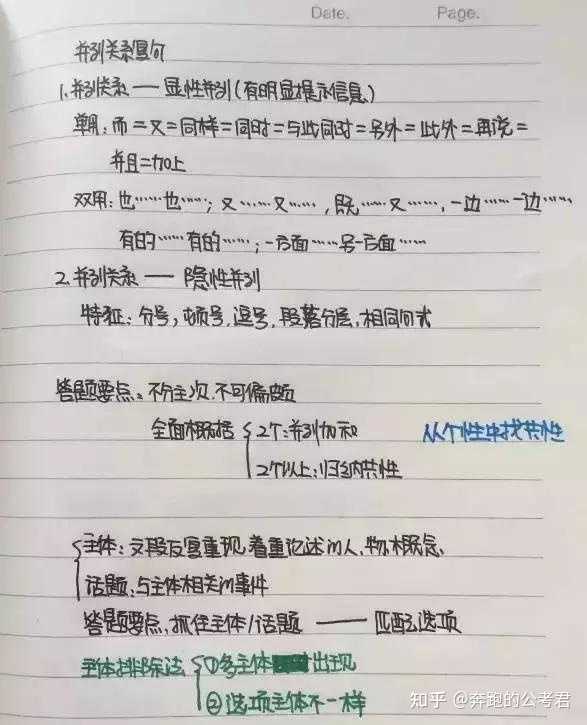 Date. Page.
并列关系复句
1.并列关系——显性并列(有明显提示信息)
单用:而=又=同样=同时=与此同时=另外=此外=再说=
并且=加上
双用:也……也……;又……又……,既……又……,一边……一边……
有的……有的……;一方面……另一方面……
2.并列关系——隐性并列
特征:分号,顿号,逗号,段落分层,相同句式
答题要点:不分主次,不可偏颇
全面概括{2个:并列加和
从个性中找共性
2个以上:归纳共性
主体:文段反复重现,着重论述的人,物,概念,
话题,与主体相关的事件
答题要点,抓住主体/话题——匹配选项
主体排除法{①多主体 出现
②选项主体不一样
知乎 @奔跑的公考君